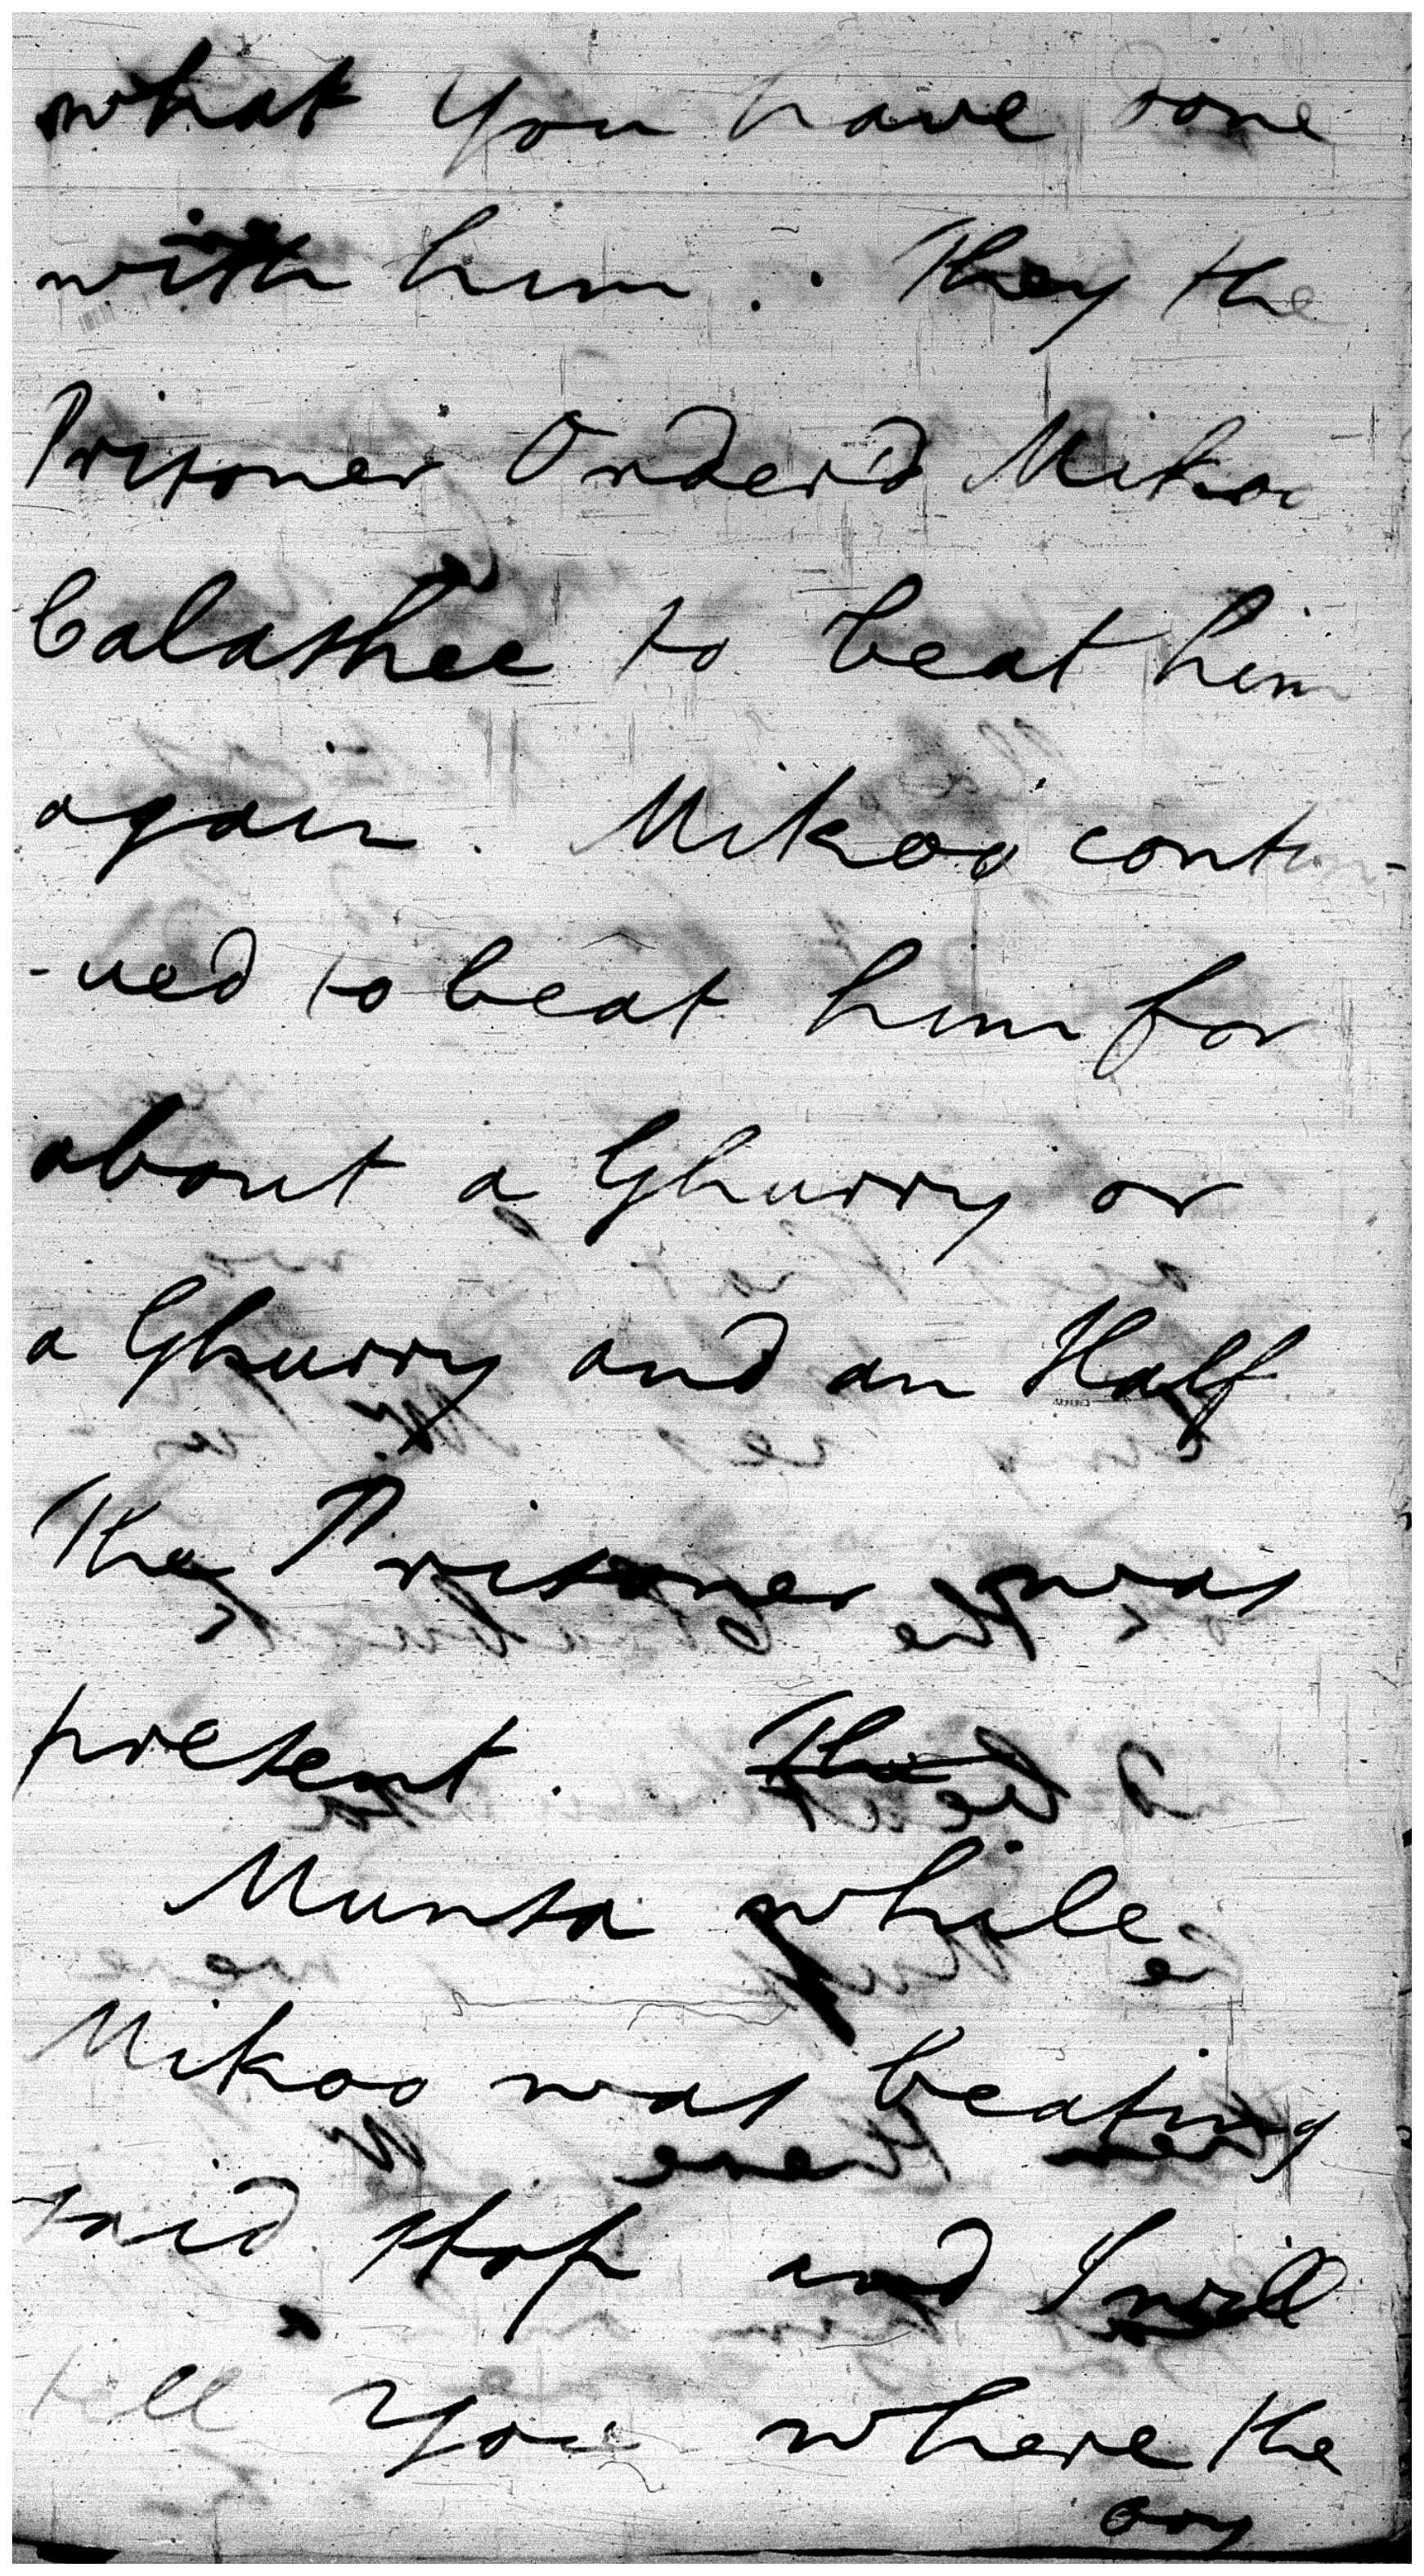 what you have done
with him . . They the
Prisoner Orderd Mikoo
Calashee to beat him
again . Mikoo contin-
-ued to beat him for
about a Ghurry or
a Ghurry and an Half
The Prisoner was
present . The
Munsa while
Mikoo was beating
said stop and I will
tell you where the
boy